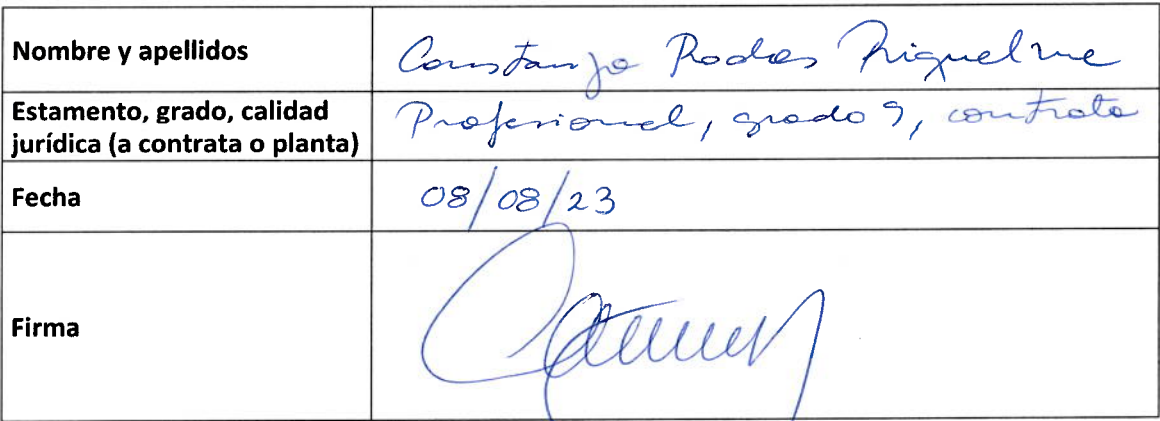 Nombre y apellidos Constanza Rodas Riquelme
Estamento, grado, calidad
jurídica (a contrata o planta) Profesional, grado 9, contrata
Fecha 08/08/23
Firma